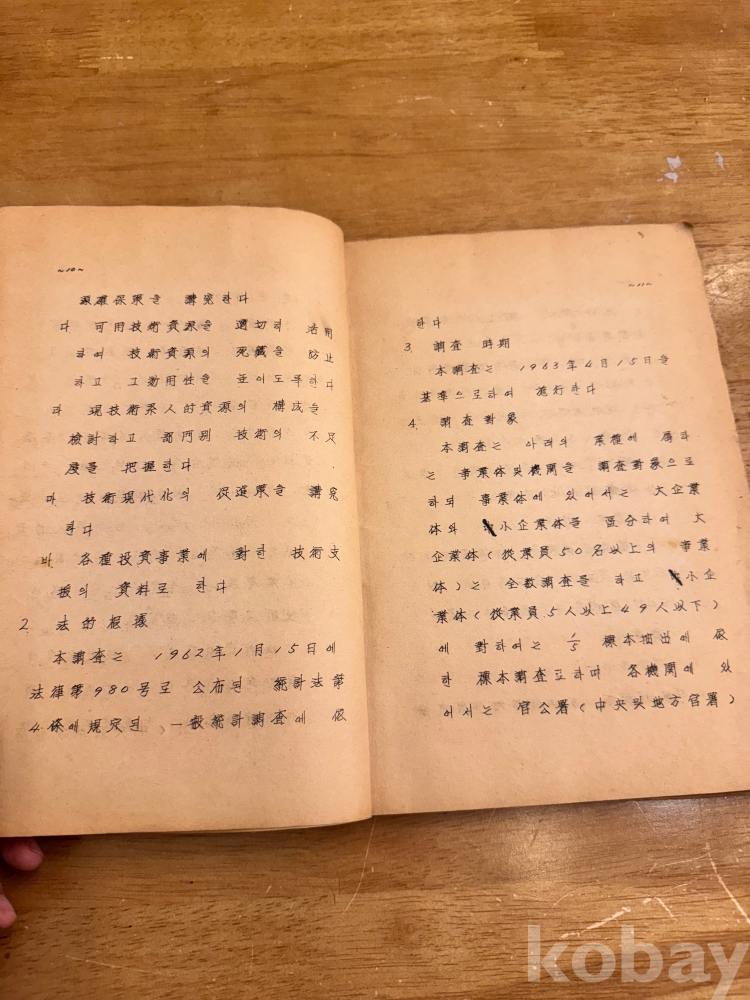 ~10~
源確保策을 講究한다
다 可用技術資源을 適切히 活用
하여 技術資源의 死藏을 防止
하고 그 効用性을 높이도록한다
라 現技術系人的資源의 構成을
檢討하고 部門別 技術의 不足
度를 把握한다
마 技術現代化의 促進策을 講究
한다
바 各種投資事業에 對한 技術支
援의 資料로 한다
2. 法的根據
本調査는 1962年1月15日에
法律第980号로 公布된 統計法第
4条에規定된 一般統計調査에 依
~11~
한다
3. 調査 時期
本調査는 1963年4月15日을
基準으로하여 進行한다
4. 調査對象
本調査는 아래의 業種에 屬하
는 事業体및機関을 調査對象으로
하되 事業体에 있어서는 大企業
体와 小企業体를 區分하여 大
企業体(從業員50名以上의 事業
体)는 全数調査를 하고 小企
業体(從業員5人以上49人以下)
에 對하여는 1/5 標本抽出에 依
한 標本調査로하며 各機関에 있
어서는 官公署(中央및地方官署)
kobay